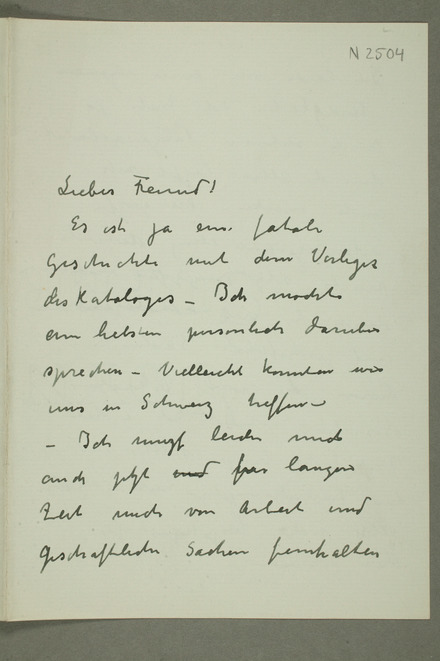 N 2504
Lieber Freund!
Es ist ja eine fatale
Geschichte mit dem Verleger
des Kataloges – Ich möchte
am liebsten persönlich darüber
sprechen – Vielleicht könnten wir
uns in Schweiz treffen –
– Ich muß leider mich
auch jetzt und für längere
Zeit mich von Arbeit und
geschäftlichen Sachen fernhalten